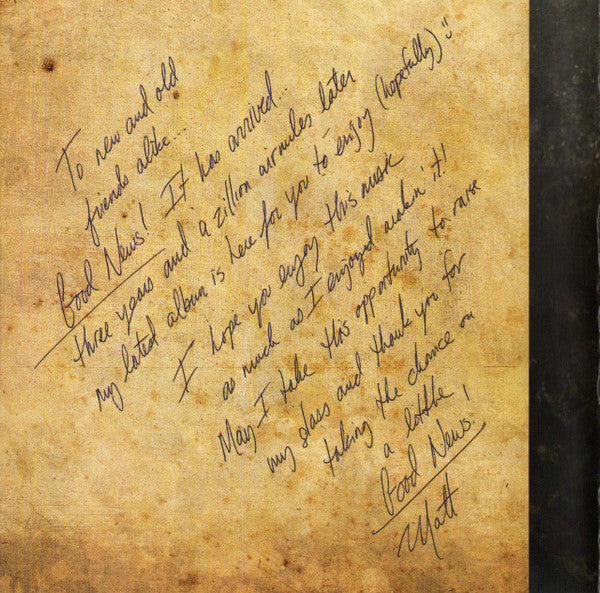 To new and old
friends alike...
Good News! It has arrived...
three years and a zillion airmiles later
my latest album is here for you to enjoy (hopefully)
I hope you enjoy this music
as much as I enjoyed makin' it!
May I take this opportunity to raise
my glass and thank you for
taking the chance on
a little
Good News.
Matt